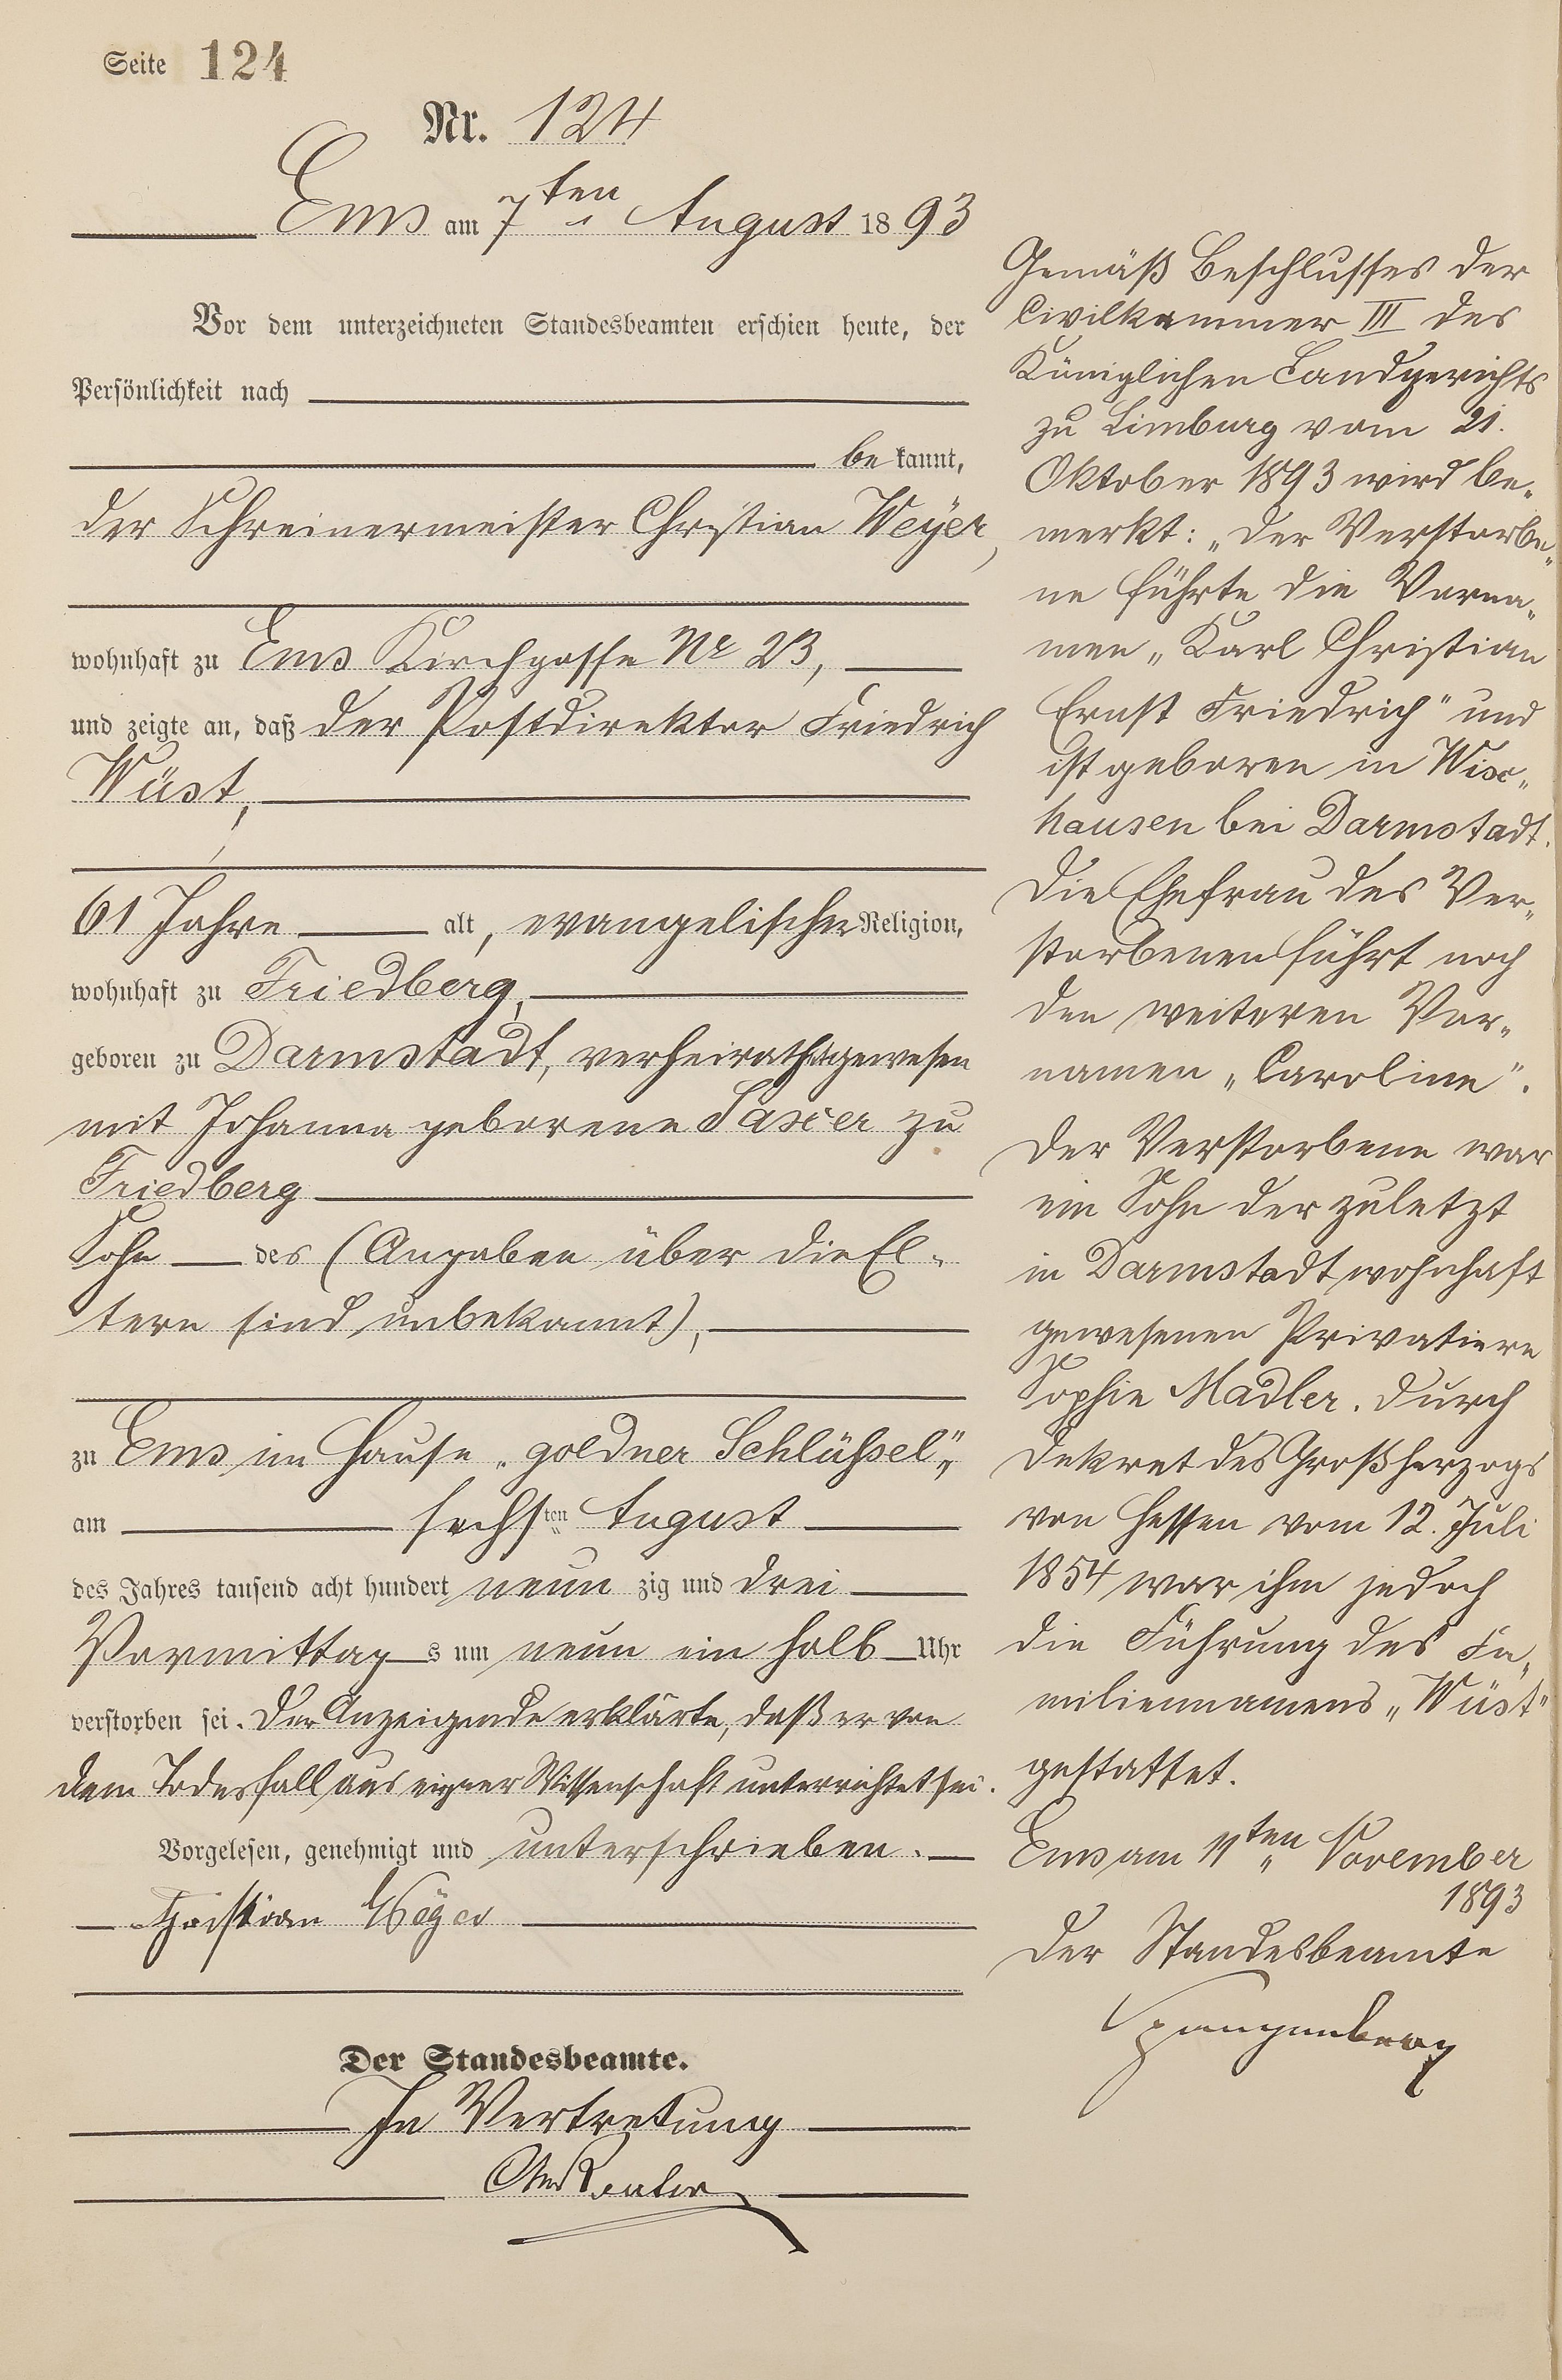 Seite 124
Nr. 124
Ems am 7ten August 1893
Vor dem unterzeichneten Standesbeamten erschien heute, der
Persönlichkeit nach
be kannt,
der Schreinermeister Christian Weyer,
wohnhaft zu Ems Kirchgasse Nr 23,
und zeigte an, daß der Postdirektor Friedrich
Wüst,
61 Jahre alt, evangelischer Religion,
wohnhaft zu Friedberg,
geboren zu Darmstadt, verheirathet gewesen
mit Johanna geborene Saxer zu
Friedberg
Sohn des (Angaben über die El-
tern sind unbekannt),
zu Ems im Hause „goldner Schlüssel",
am sechsten August
des Jahres tausend acht hundert neun zig und drei
Vormittag s um neun ein halb Uhr
verstorben sei. Der Anzeigende erklärte, daß er von
dem Todesfall aus eigner Wissenschaft unterrichtet sei.
Vorgelesen, genehmigt und unterschrieben.
Christian Weyer
Der Standesbeamte.
In Vertretung
Gemäß Beschlusses der
Civilkammer III des
Königlichen Landgerichts
zu Limburg vom 21.
Oktober 1893 wird be-
merkt: „Der Verstorbe-
ne führte die Vorna-
men „Karl Christian
Ernst Friedrich" und
ist geboren in Wix-
hausen bei Darmstadt.
Die Ehefrau des Ver-
storbenen führt noch
den weiteren Vor-
namen „Caroline".
Der Verstorbene war
ein Sohn der zuletzt
in Darmstadt wohnhaft
gewesenen Privatiere
Sophie Madler. Durch
Dekret des Großherzogs
von Hessen vom 12. Juli
1854 war ihm jedoch
die Führung des Fa-
miliennamens „Wüst"
gestattet.
Ems am 11ten November
1893
Der Standesbeamte
Spangenberg